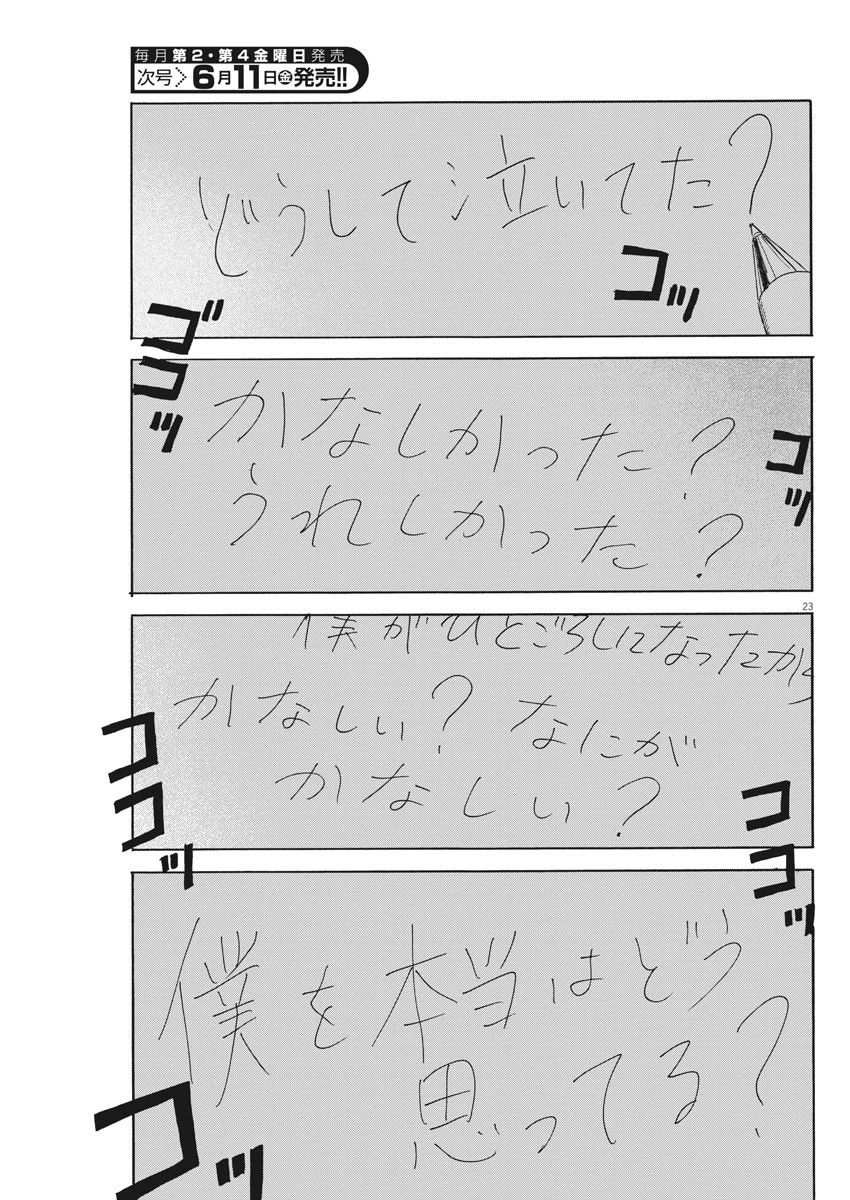 毎月第2・第4金曜日発売
次号>6月11日㊎発売!!
どうして泣いてた?
コッ
ゴ
コッ
かなしかった?
コッ
うれしかった?
23
僕がひとごろしになったから
かなしい? なにが
かなしい?
コ
コッ
コ
コッ
僕を本当はどう
思ってる?
コッ